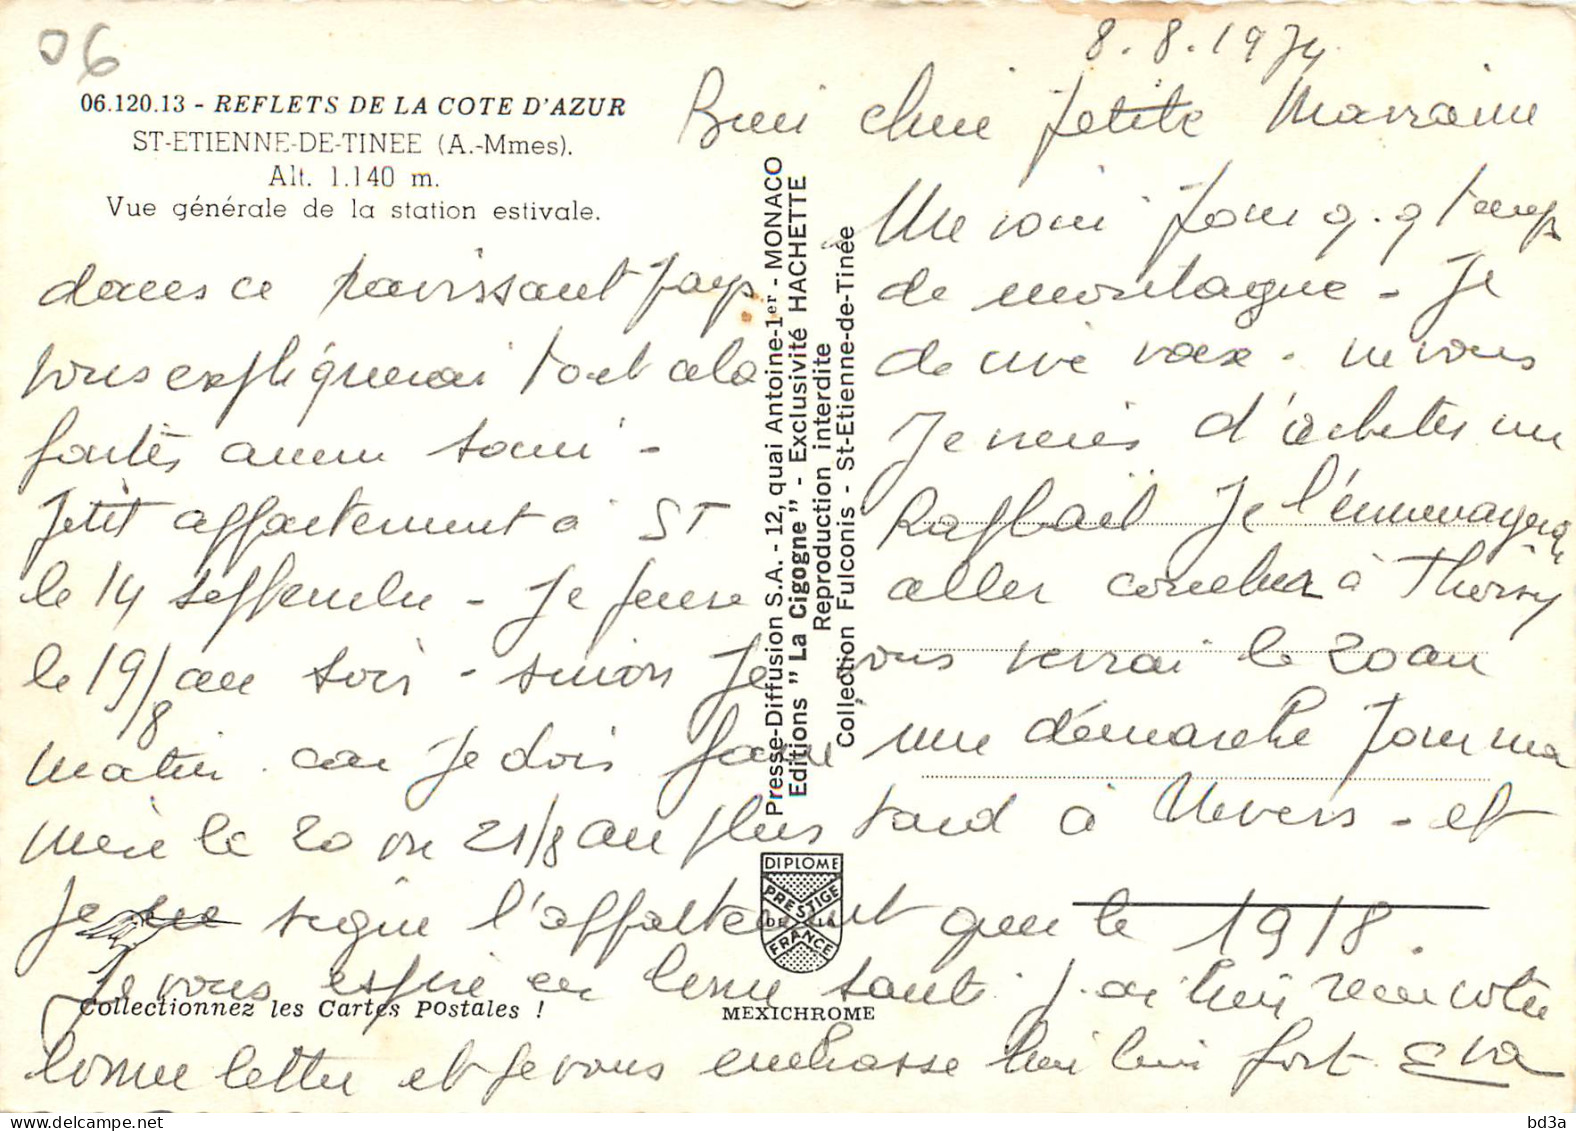 06
8.8.1974
06.120.13 - REFLETS DE LA COTE D'AZUR
ST-ETIENNE-DE-TINEE (A.-Mmes).
Alt. 1.140 m.
Vue générale de la station estivale.
Bien chère petite Marraine
Me voici pour q.q temps
dans ce ravissant pays de montagne - Je
vous expliquerai tout cela de vive voix - 
fortes 
Je viens d'acheter un
petit appartement à ST Raphaël Je l'emménagerai
le 14 septembre - Je pense aller coucher à Thoisy
le 19/8 au soir - sinon je vous verrai le 20 au
matin car je dois faire une démarche pour ma
mère le 20 ou 21/8 au plus tard à Nevers - et
je ne signe l'appartement que le 1918.
Je vous espère en bonne santé. J'ai bien reçu votre
bonne lettre et je vous embrasse bien bien fort. Eva
Presse-Diffusion S.A. - 12, quai Antoine-1er - MONACO
Editions "La Cigogne" - Exclusivité HACHETTE
Reproduction interdite
Collection Fulconis - St-Etienne-de-Tinée
DIPLOME
PRESTIGE
DE LA
FRANCE
Collectionnez les Cartes Postales !
MEXICHROME
bd3a